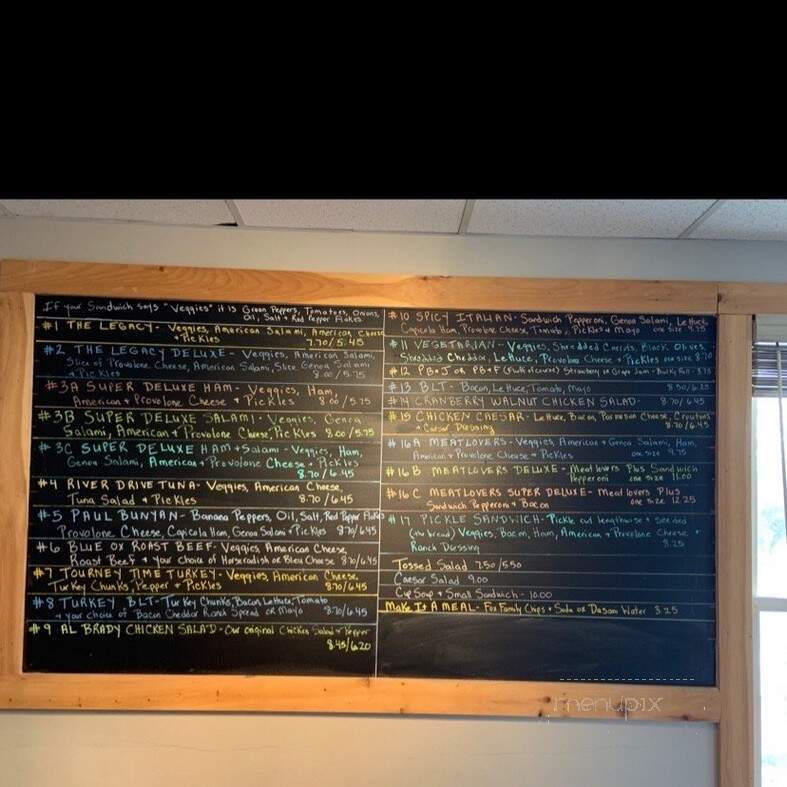 If your Sandwich says "Veggies" it is Green Peppers, Tomatoes, Onions,
Oil, Salt + Red Pepper Flakes
#1 THE LEGACY - Veggies, American Salami, American Cheese
+ Pickles 7.70/5.45
#2 THE LEGACY DELUXE - Veggies, American Salami,
Slice of Provolone Cheese, American Salami, Slice Genoa Salami
+ Pickles 8.00/5.75
#3A SUPER DELUXE HAM - Veggies, Ham,
American + Provolone Cheese + Pickles 8.00/5.75
#3B SUPER DELUXE SALAMI - Veggies, Genoa
Salami, American + Provolone Cheese, Pickles 8.00/5.75
#3C SUPER DELUXE HAM + Salami - Veggies, Ham,
Genoa Salami, American + Provolone Cheese + Pickles
8.70/6.45
#4 RIVER DRIVE TUNA - Veggies, American Cheese,
Tuna Salad + Pickles 8.70/6.45
#5 PAUL BUNYAN - Banana Peppers, Oil, Salt, Red Pepper Flakes
Provolone Cheese, Capicola Ham, Genoa Salami + Pickles 8.70/6.45
#6 BLUE OX ROAST BEEF - Veggies, American Cheese,
Roast Beef + your choice of Horseradish or Bleu Cheese 8.70/6.45
#7 TOURNEY TIME TURKEY - Veggies, American Cheese,
Turkey Chunks, Pepper + Pickles 8.70/6.45
#8 TURKEY BLT - Turkey Chunks, Bacon, Lettuce, Tomato
+ your choice of Bacon Cheddar Ranch Spread or Mayo 8.70/6.45
#9 AL BRADY CHICKEN SALAD - Our Original Chicken Salad + Pepper
8.45/6.20
#10 SPICY ITALIAN - Sandwich Pepperoni, Genoa Salami, Lettuce
Capicola Ham, Provolone Cheese, Tomato, Pickles + Mayo one size 9.75
#11 VEGETARIAN - Veggies, Shredded Carrots, Black Olives,
Shredded Cheddar, Lettuce, Provolone Cheese + Pickles one size 8.70
#12 PB+J OR PB+F (Fluff of course) Strawberry or Grape Jam - Bulky Roll - 3.75
#13 BLT - Bacon, Lettuce, Tomato, Mayo 8.50/6.25
#14 CRANBERRY WALNUT CHICKEN SALAD - 8.70/6.45
#15 CHICKEN CAESAR - Lettuce, Bacon, Parmesan Cheese, Croutons
+ Caesar Dressing 8.70/6.45
#16A MEATLOVERS - Veggies, American + Genoa Salami, Ham,
American + Provolone Cheese + Pickles one size 9.75
#16B MEATLOVERS DELUXE - Meatlovers Plus Sandwich
Pepperoni one size 11.00
#16C MEATLOVERS SUPER DELUXE - Meatlovers Plus
Sandwich Pepperoni + Bacon one size 12.25
#17 PICKLE SANDWICH - Pickle cut lengthwise + seeded
(the bread) Veggies, Bacon, Ham, American + Provolone Cheese +
Ranch Dressing 8.25
Tossed Salad 7.50/5.50
Caesar Salad 9.00
Cup Soup + Small Sandwich - 10.00
Make It A MEAL - Fox Family Chips + Soda or Dasani Water 3.25
menupix